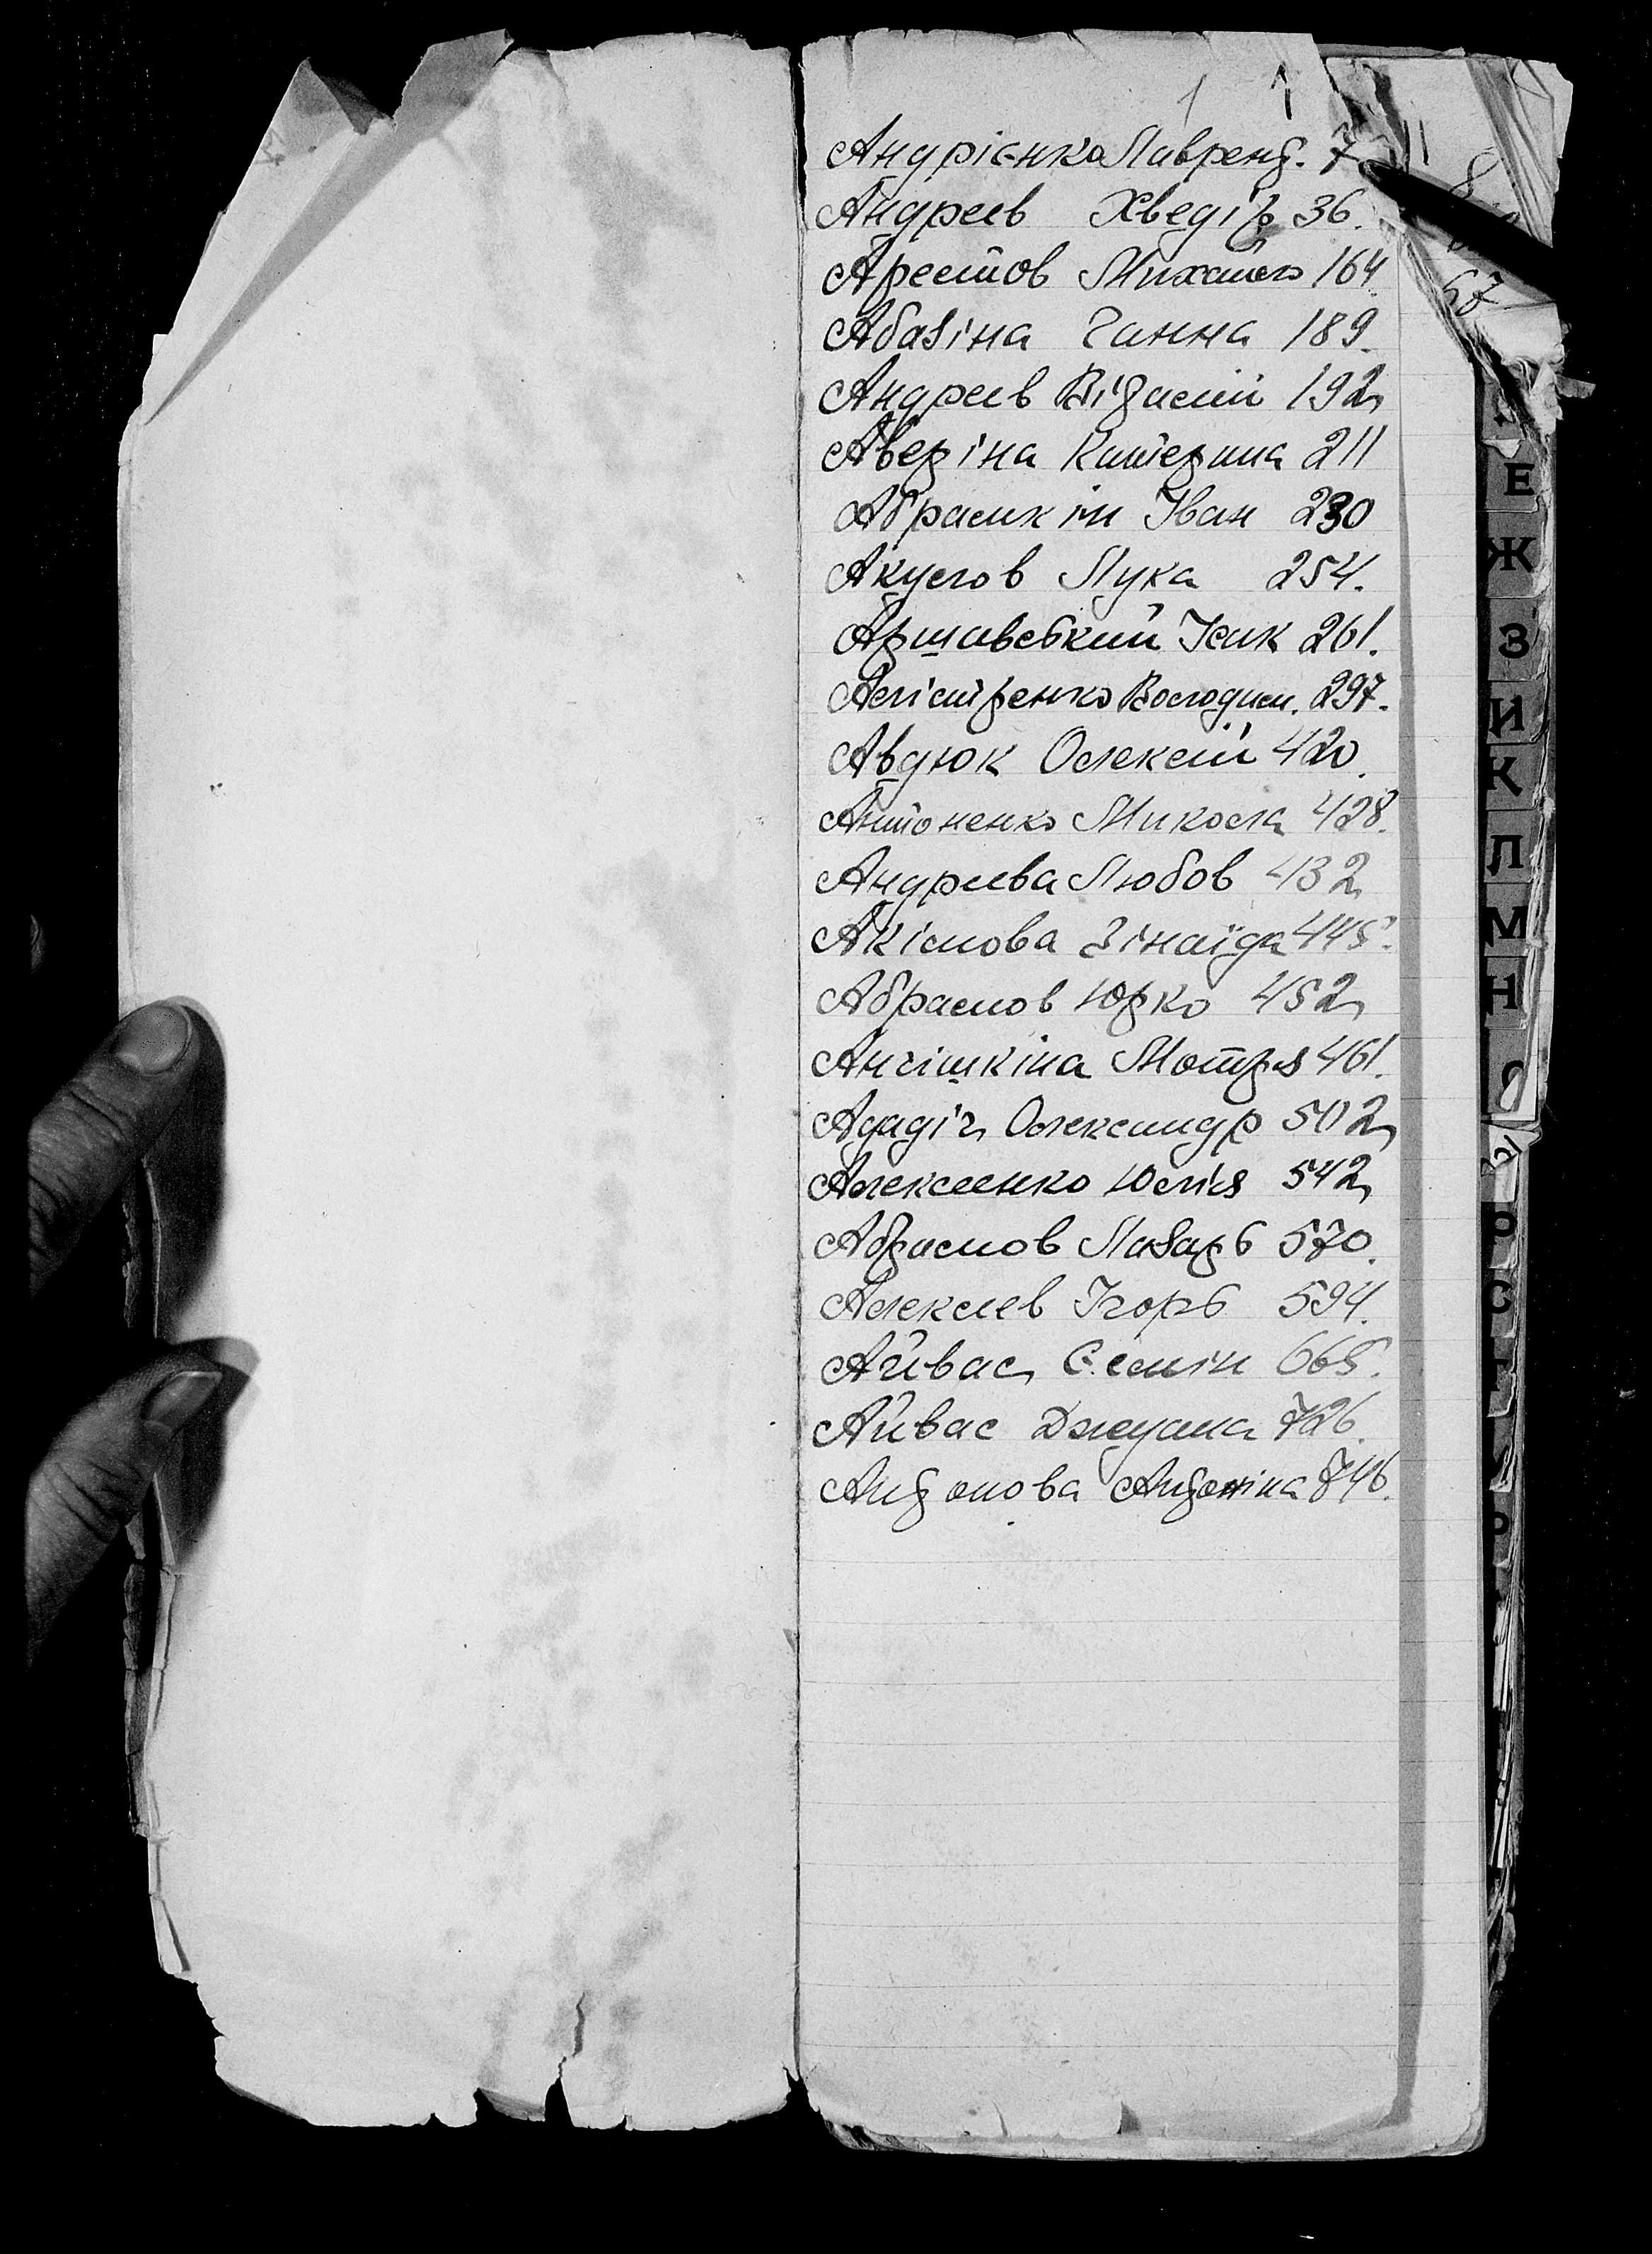 1 1
Андрієнко Лаврент. 7
Андреєв Хведір 36.
Арестов Михайло 164.
Абазіна Ганна 189.
Андреєв Віталій 192
Аверіна Катерина 211
Абрамкін Іван 230
Акулов Лука 254.
Аршавський Ісак 261.
Алістренко Володим. 297.
Авдюк Олексій 420.
Антоненко Микола 428.
Андреєва Любов 432
Акімова Зінаїда 445.
Абрамов Юрко 452
Анчішкіна Мотря 461.
Ададіч Олександр 502
Алексєєнко Юлія 542
Абрамов Лазарь 570.
Алексєєв Ігорь 594.
Айвас Семін 665.
Айвас 726.
Антонова Антоніна 746.
67
Е
Ж
З
И
К
Л
М
Н
О
Р
С